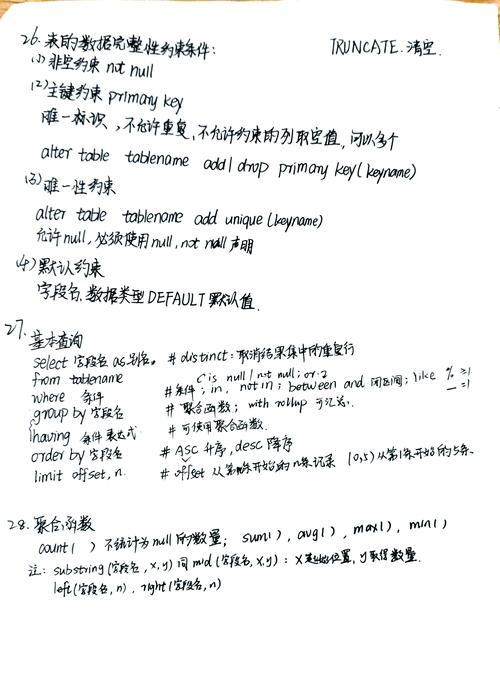 26. 表的数据完整性约束条件: TRUNCATE.清空.
(1) 非空约束 not null
(2) 主键约束 primary key
唯一标识, 不允许重复, 不允许约束的列取空值, 可以多个
alter table tablename add/drop primary key(keyname)
(3) 唯一性约束
alter table tablename add unique (keyname)
允许null, 必须使用null, not null声明
(4) 默认约束
字段名 数据类型 DEFAULT 默认值.
27. 基本查询
select 字段名 as 别名。 # distinct: 取消结果集中的重复行
from tablename is null / not null; or
where 条件 #条件; in, not in; between and 闭区间; like % ≥1 _ =1
group by 字段名 # 聚合函数; with rollup 可汇总.
having 条件表达式 # 可使用聚合函数.
order by 字段名 # ASC 升序, desc 降序
limit offset, n. # offset 从第 开始的n条记录 (0,5) 从第1条开始的5条.
28. 聚合函数
count( ) 不统计为null的数量; sum( ), avg( ), max( ), min( )
注: substring (字段名, x, y) 同 mid (字段名, x, y): x是起始位置, y取得数量.
left(字段名, n), right(字段名, n)